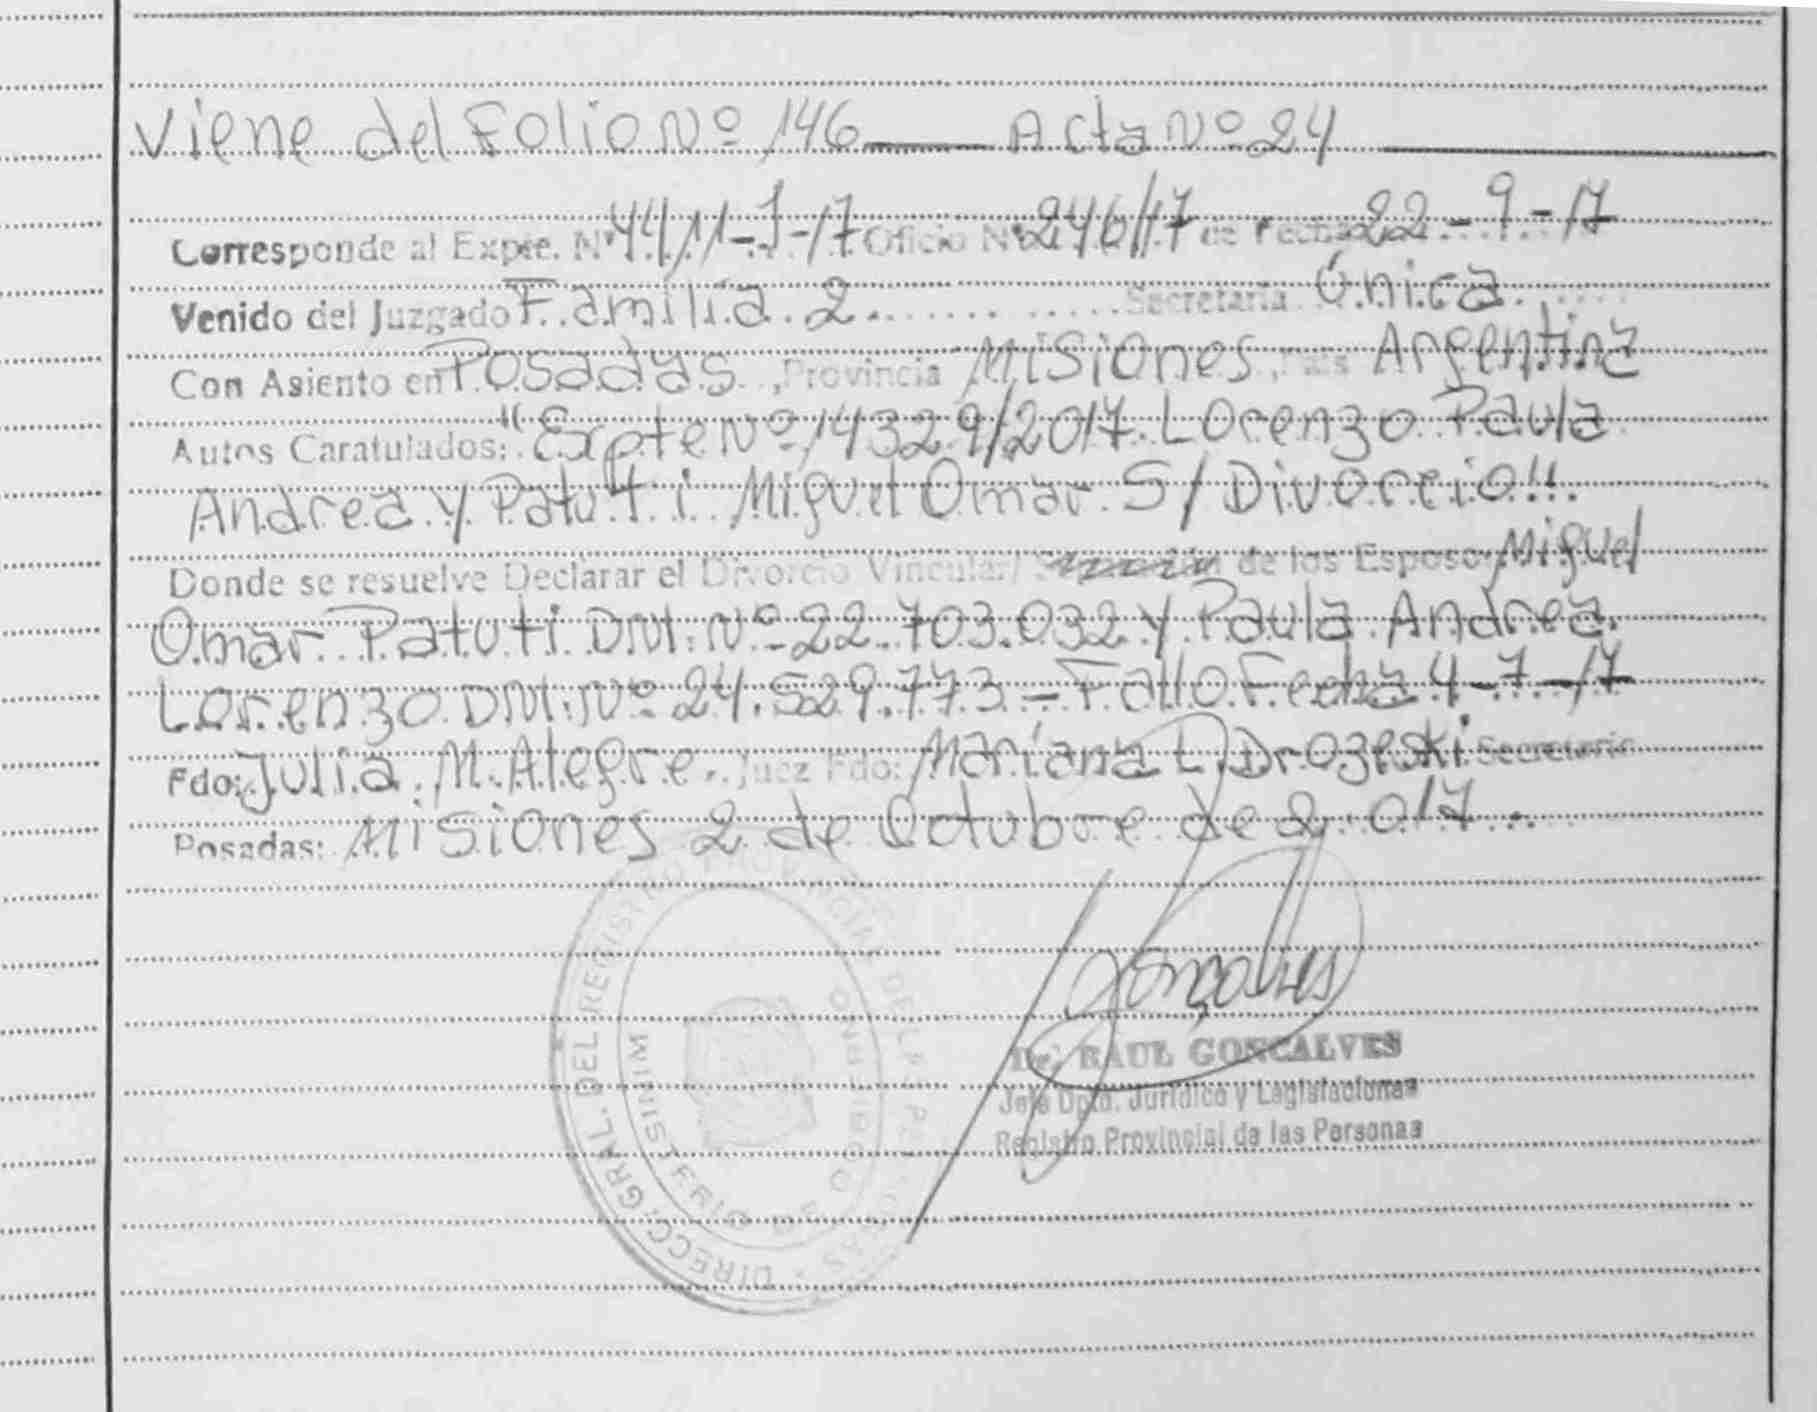 Viene del Folio Nº 146 — Acta Nº 24 —
Corresponde al Expte. Nº 4411-J-17 Oficio Nº 246/17 de Fecha 22-9-17
Venido del Juzgado Familia 2 Secretaría Única
Con Asiento en Posadas, Provincia Misiones, País Argentina
Autos Caratulados: "Expte Nº 14329/2017. Lorenzo Paula
Andrea y Patuti Miguel Omar S/ Divorcio".
Donde se resuelve Declarar el Divorcio Vincular/ de los Esposos Miguel
Omar Patuti DNI: Nº 22.703.032 y Paula Andrea
Lorenzo DNI: Nº 24.529.773 - Fallo Fecha 4-7-17
Fdo: Julia M. Alegre. Juez Fdo: Mariana L. Secretaria
Posadas: Misiones 2 de Octubre de 2.017.
DIRECC. GRAL. DEL REGISTRO PROVINCIAL DE LAS PERSONAS
MINISTERIO DE GOBIERNO
Dr. RAUL GONCALVES
Jefe Dpto. Jurídico y Legislaciones
Registro Provincial de las Personas